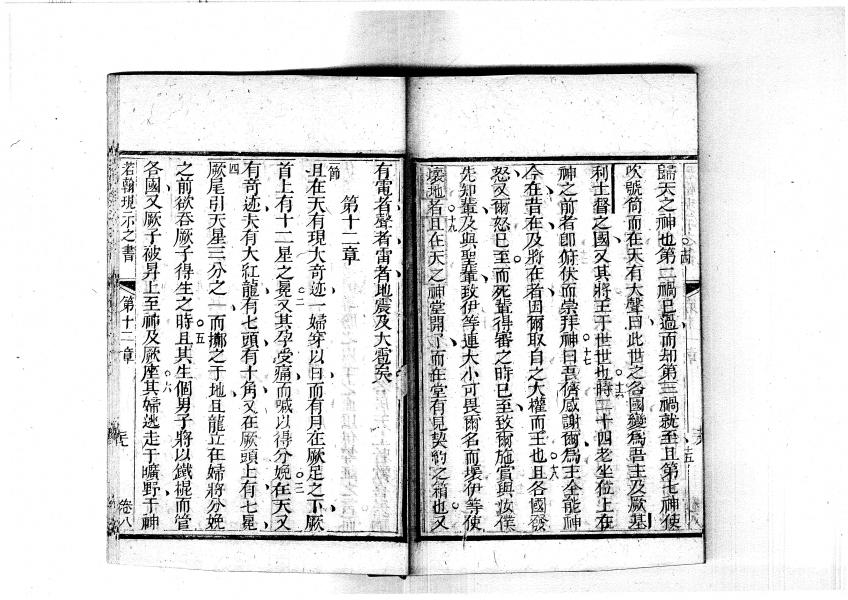 歸天之神也第二禍已過而却第三禍就至且第七神使
吹號筒而在天有大聲曰此世之各國變為吾主及厥基
利士督之國又其將王于世世也時二十四老坐位上在
神之前者卽俯伏而崇拜神曰吾儕感謝爾為主全能神
今在昔在及將在者因爾取自之大權而王也且各國發
怒又爾怒已至而死輩得審之時已至致爾施賞與汝僕
先知輩及與聖輩致伊等連大小可畏爾名而壞伊等使
壞地者且在天之神堂開了而在堂有見契約之箱也又
有電者聲者雷者地震及大雹矣
第十二章
一節
且在天有現大奇迹一婦穿以日而有月在厥足之下厥
首上有十二星之冕又其孕受痛而喊以得分娩在天又
有奇迹夫有大紅龍有七頭有十角又在厥頭上有七冕
厥尾引天星三分之一而擲之于地且龍立在婦將分娩
之前欲吞厥子得生之時且其生個男子將以鐵棍而管
各國又厥子被昇上至神及厥座其婦逃走于曠野于神
若翰現示之書
第十二章
卷八